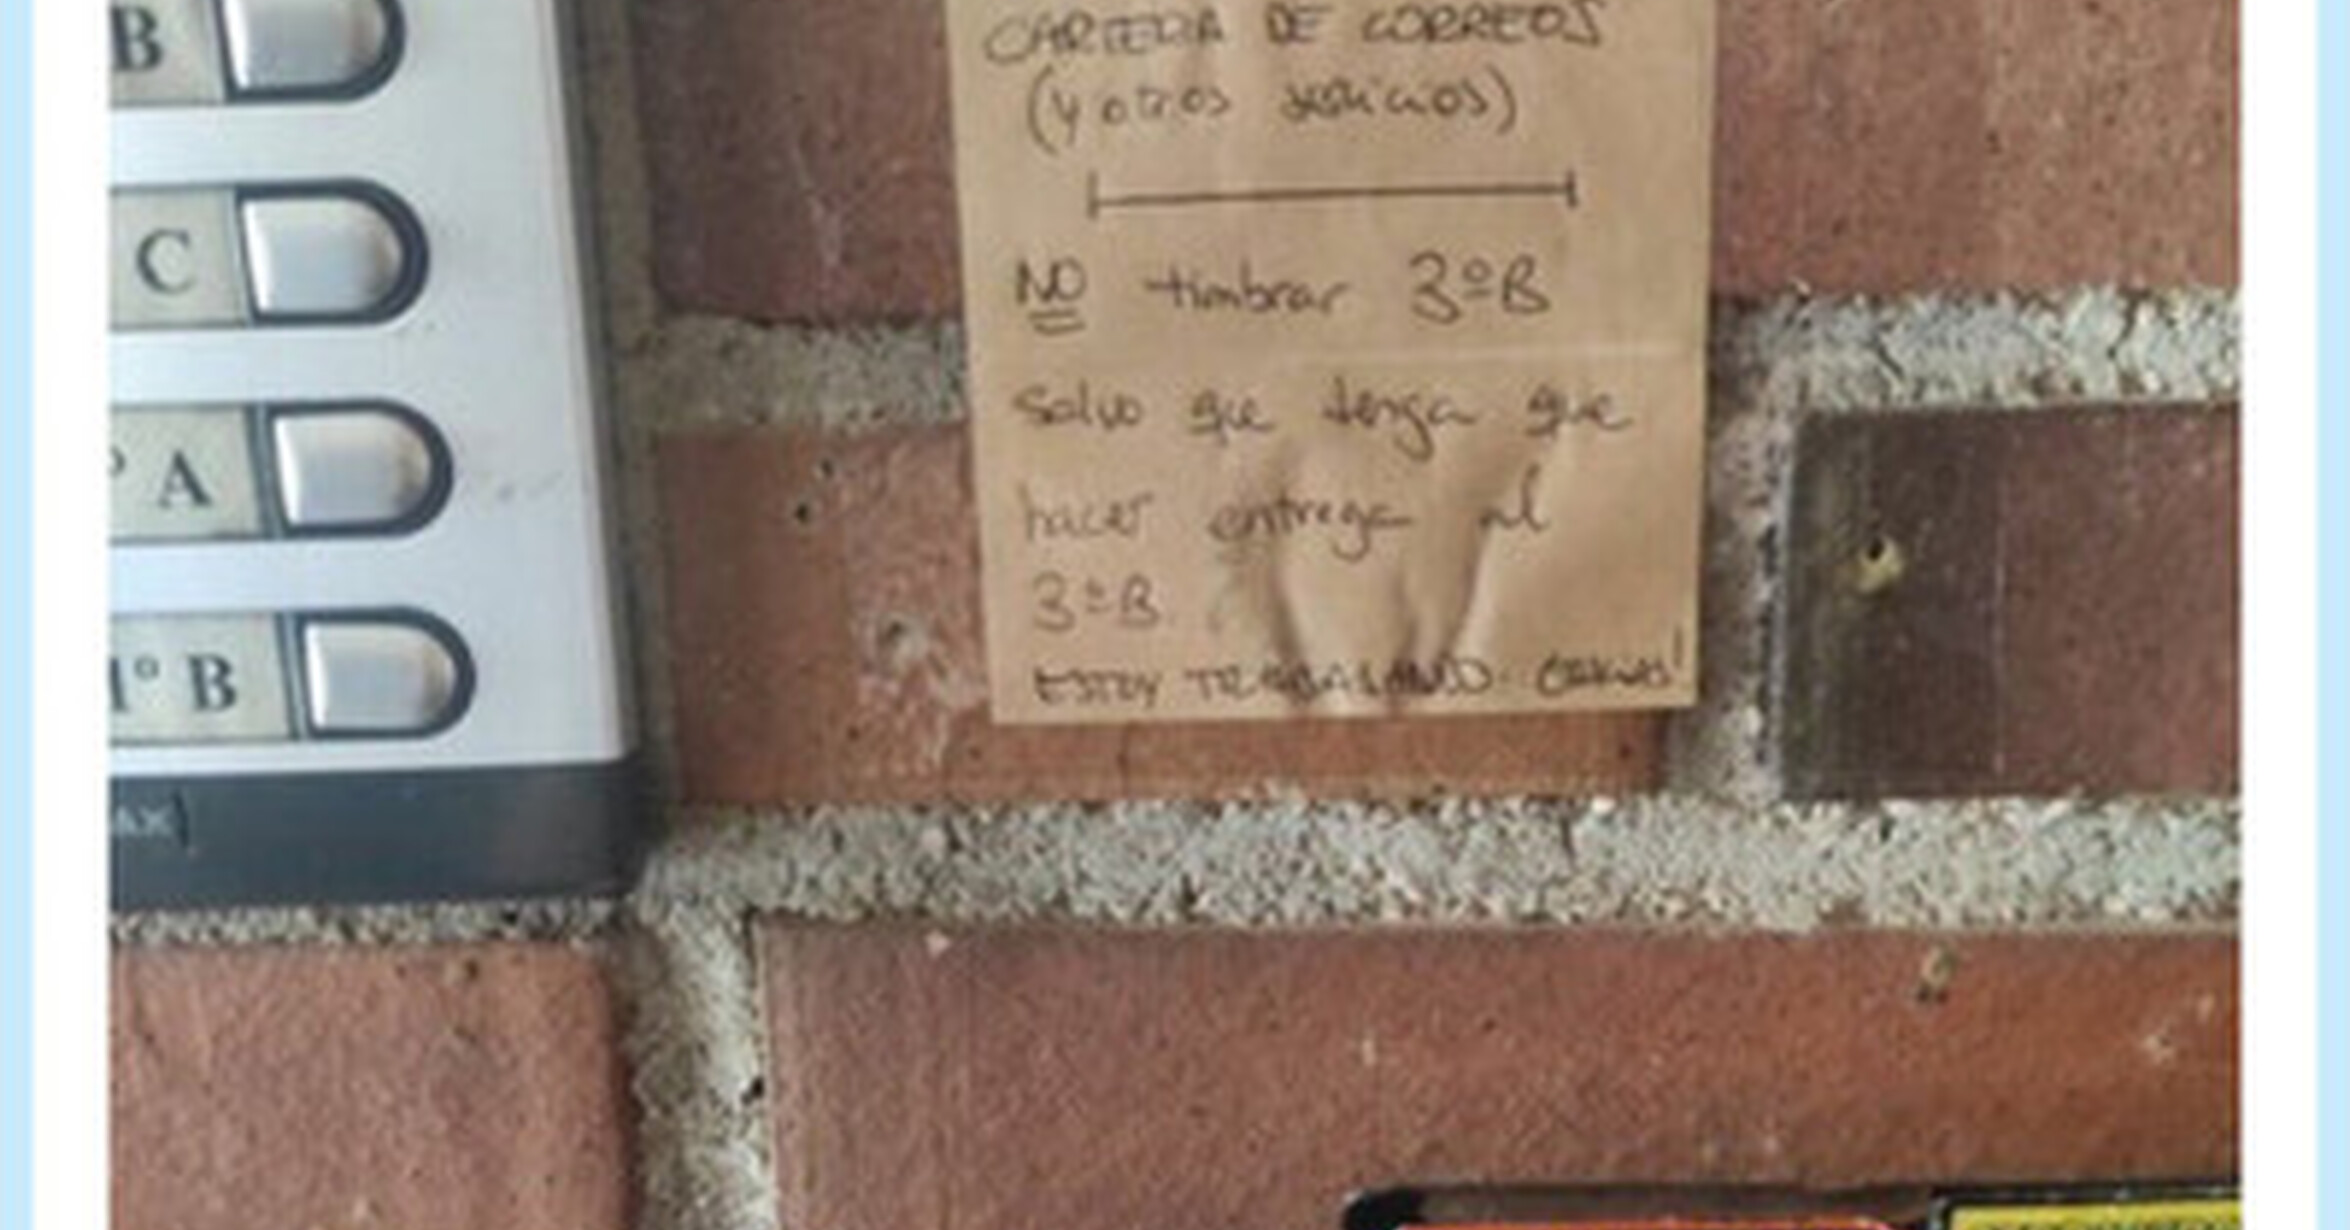 B
CARTERA DE CORREOS
(y otros servicios)
C
NO timbrar 3ºB
salvo que tenga que
º A
hacer entrega al
3ºB
1º B
ESTOY TRABAJANDO. GRACIAS!